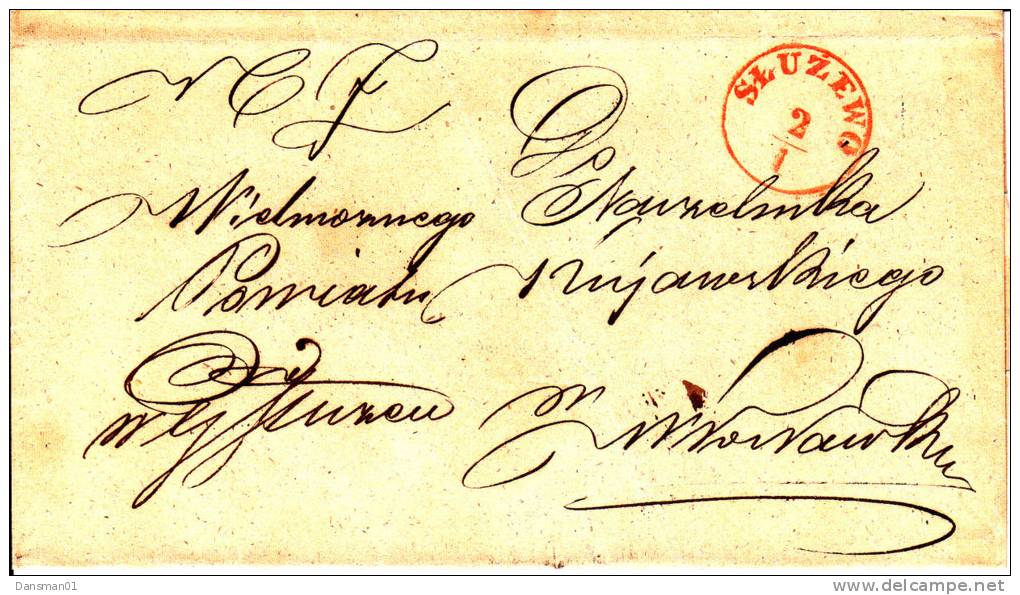 SŁUŻEWO
2
1
Do
Wielmoznego Naczelnika
Powiatu Kujawskiego
w Służeu
w Włocławku
Dansman01
www.delcampe.net